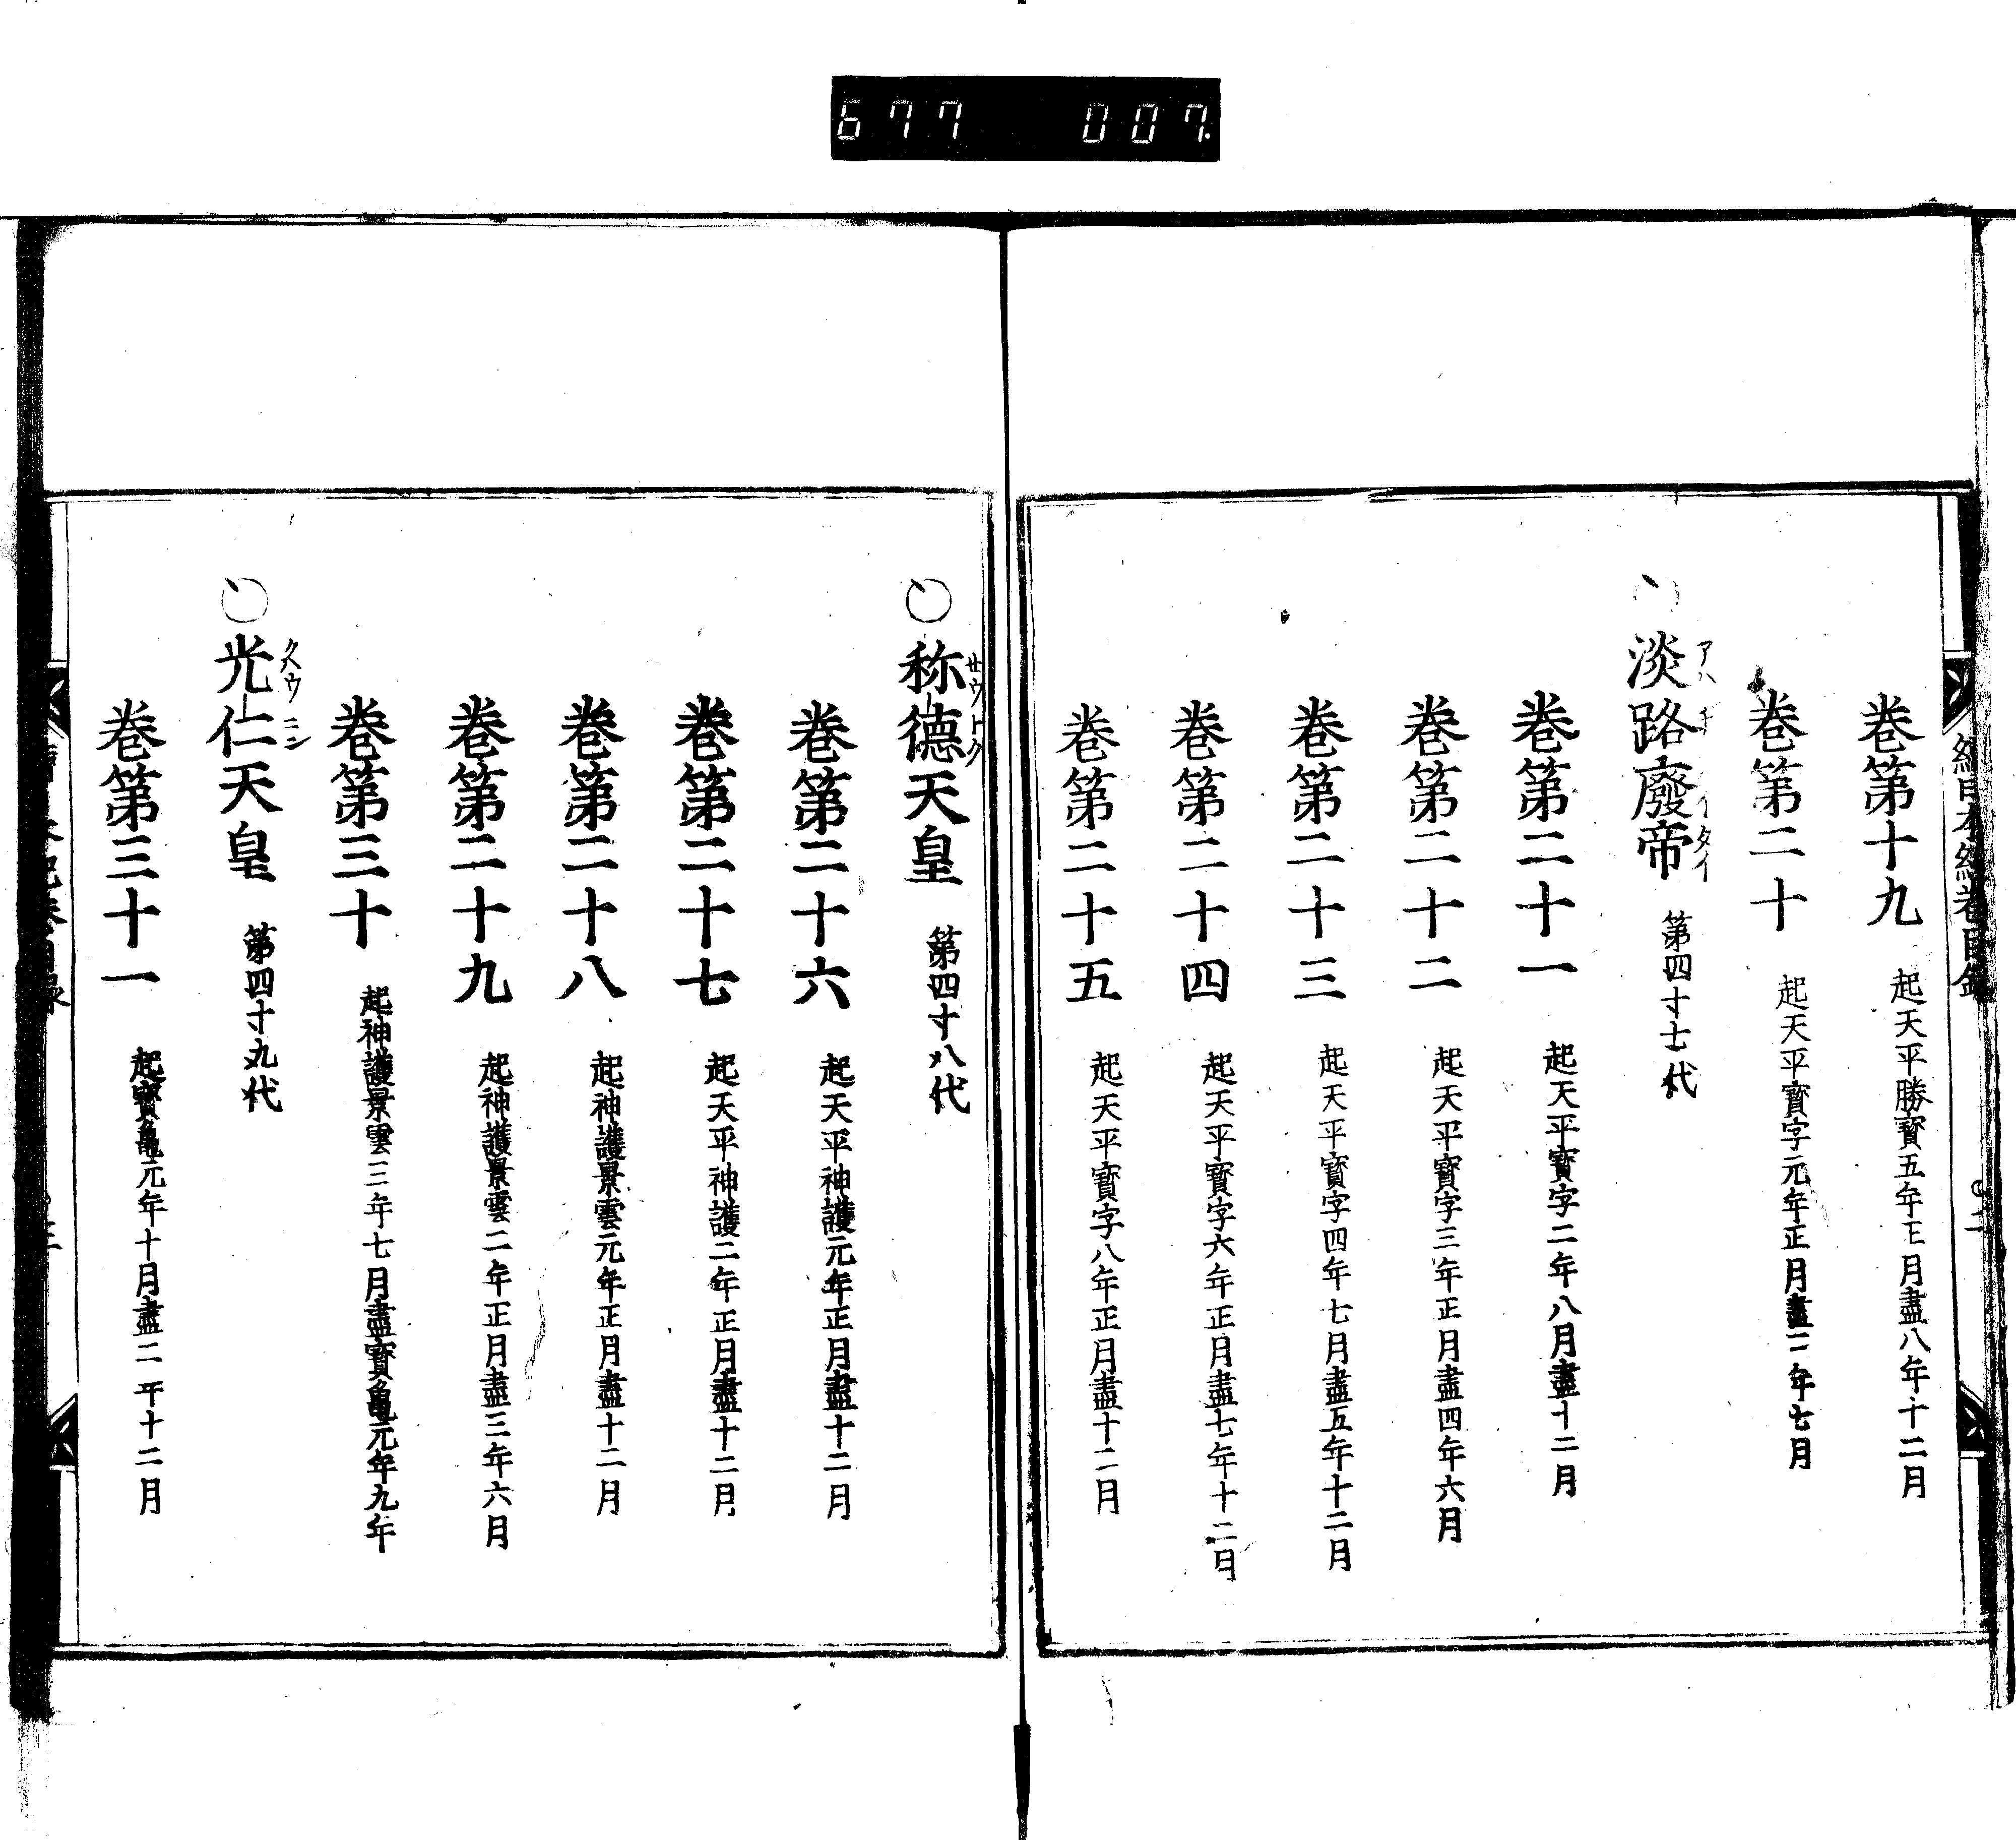 677 007.
卷第十九 起天平勝寳五年正月盡八年十二月
卷第二十 起天平寳字元年正月盡二年七月
淡路廢帝 第四十七代
卷第二十一 起天平寳字二年八月盡十二月
卷第二十二 起天平寳字三年正月盡四年六月
卷第二十三 起天平寳字四年七月盡五年十二月
卷第二十四 起天平寳字六年正月盡七年十二月
卷第二十五 起天平寳字八年正月盡十二月
サウトク
○称德天皇 第四十八代
卷第二十六 起天平神護元年正月盡十二月
卷第二十七 起天平神護二年正月盡十二月
卷第二十八 起神護景雲元年正月盡十二月
卷第二十九 起神護景雲二年正月盡三年六月
卷第三十 起神護景雲三年七月盡寳龜元年九年
クヘウニン
○光仁天皇 第四十九代
卷第三十一 起寳龜元年十月盡二年十二月